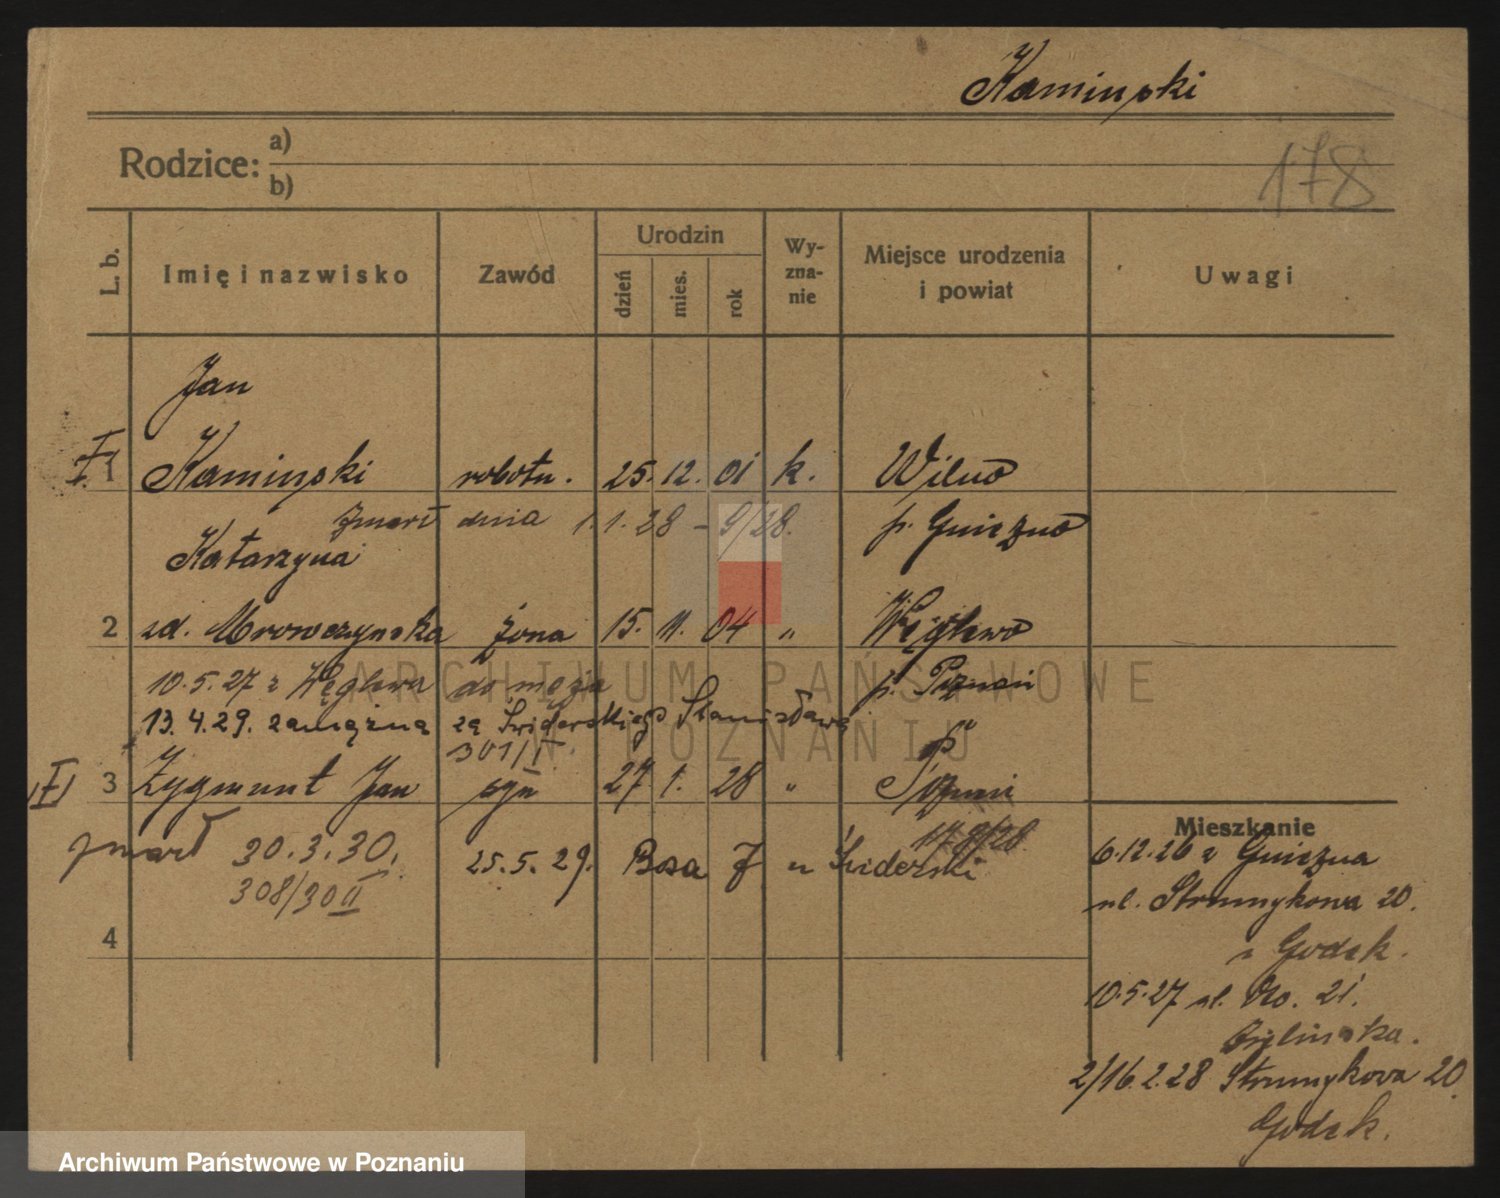 Kaminski
178
Rodzice: a)
b)
L. b.
Imię i nazwisko
Zawód
Urodzin
dzień
mies.
rok
Wy-
zna-
nie
Miejsce urodzenia
i powiat
Uwagi
Jan
1 Kaminski robotn. 25. 12. 01 k. Wilno
zmarł dnia 1.1.28 - 9/28. p. Gniezno
Katarzyna
2 zd. Mrowczynska żona 15. 11. 04 " Węglewo
10.5.27 z Węglewa do męża p. Poznań
13.4.29. zamężna za Świderskiego Stanisława
301/I
3 Zygmunt Jan syn 27. 1. 28 "
zmarł 30.3.30. 25.5.29. Bosa 7 u Świderski
308/30 II
4
Mieszkanie
6.12.26 z Gniezna
ul. Strumykowa 20.
z Godek.
10.5.27 ul. No. 21.
2/16.2.28 Strumykowa 20.
Godek.
ARCHIWUM PAŃSTWOWE
W POZNANIU
Archiwum Państwowe w Poznaniu